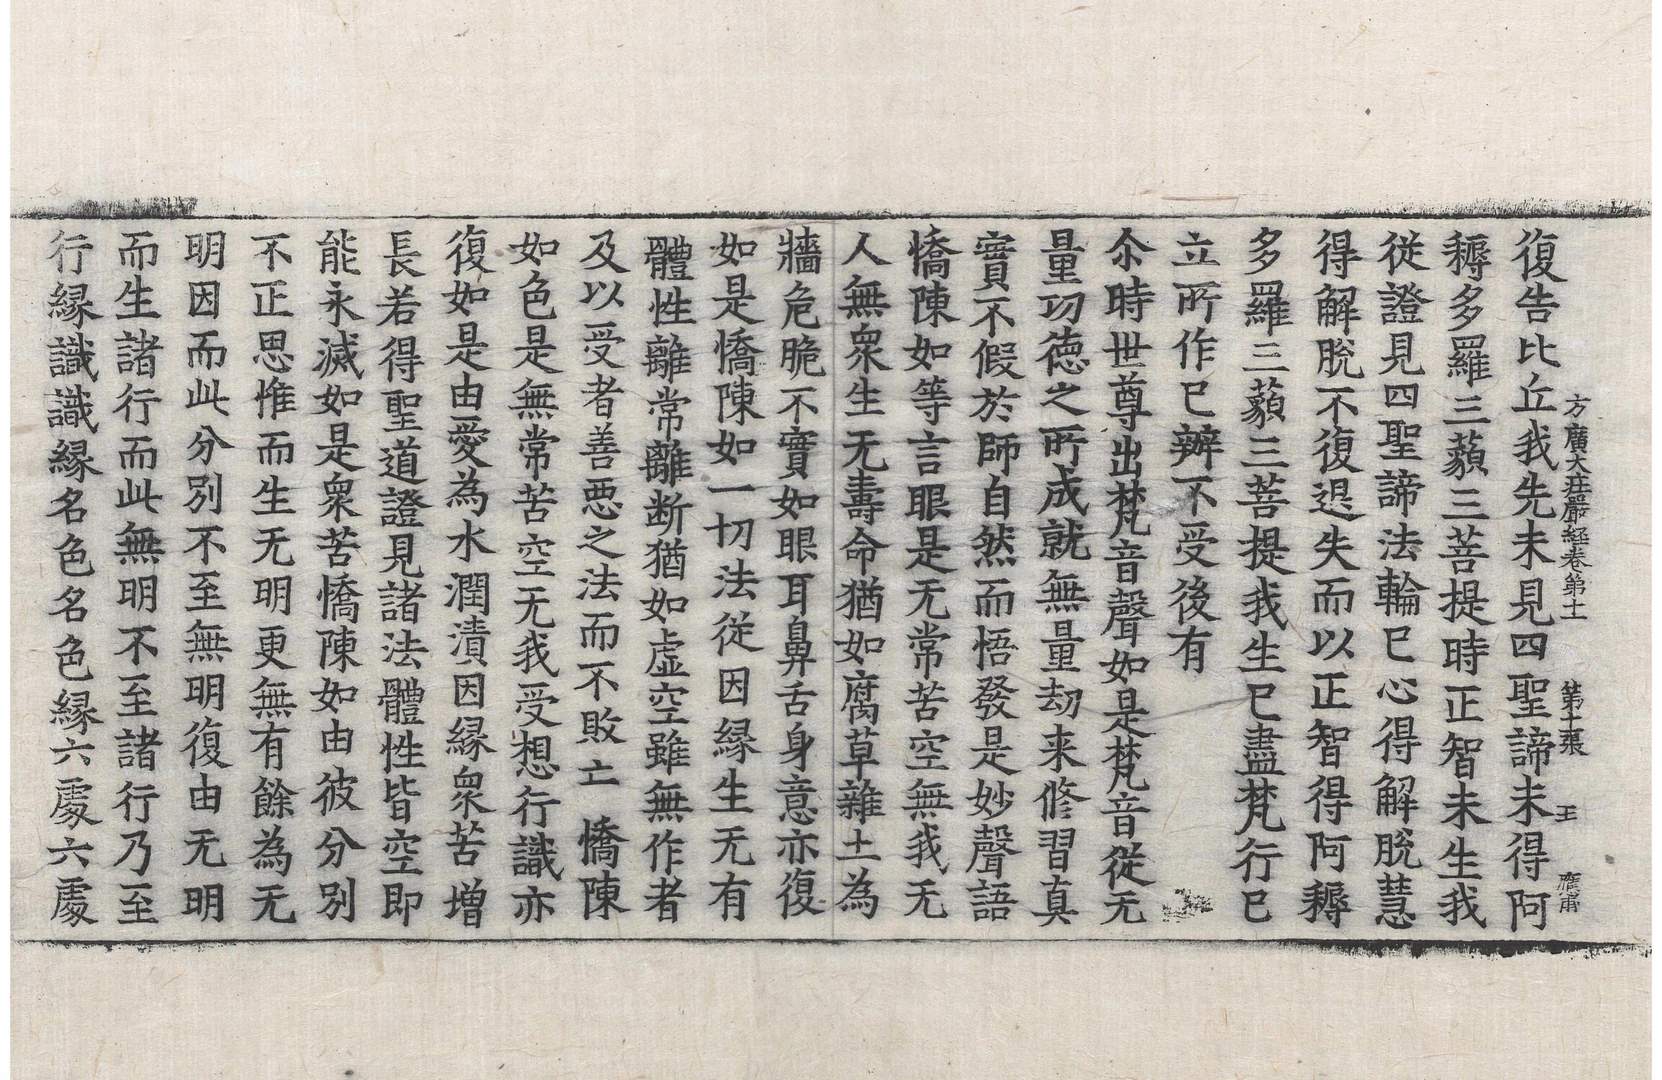 方廣大莊嚴經卷第十一 第十一張 王
復告比丘我先未見四聖諦未得阿
耨多羅三藐三菩提時正智未生我
從證見四聖諦法輪已心得解脫慧
得解脫不復退失而以正智得阿耨
多羅三藐三菩提我生已盡梵行已
立所作已辦不受後有
尒時世尊出梵音聲如是梵音從无
量功德之所成就無量劫来修習真
實不假於師自然而悟發是妙聲語
憍陳如等言眼是无常苦空無我无
人無衆生无壽命猶如腐草雜土為
牆危脆不實如眼耳鼻舌身意亦復
如是憍陳如一切法從因縁生无有
體性離常離断猶如虛空雖無作者
及以受者善惡之法而不敗亡 憍陳
如色是無常苦空无我受想行識亦
復如是由愛為水潤漬因縁衆苦增
長若得聖道證見諸法體性皆空即
能永滅如是衆苦憍陳如由彼分別
不正思惟而生无明更無有餘為无
明因而此分別不至無明復由无明
而生諸行而此無明不至諸行乃至
行縁識識縁名色名色縁六處六處